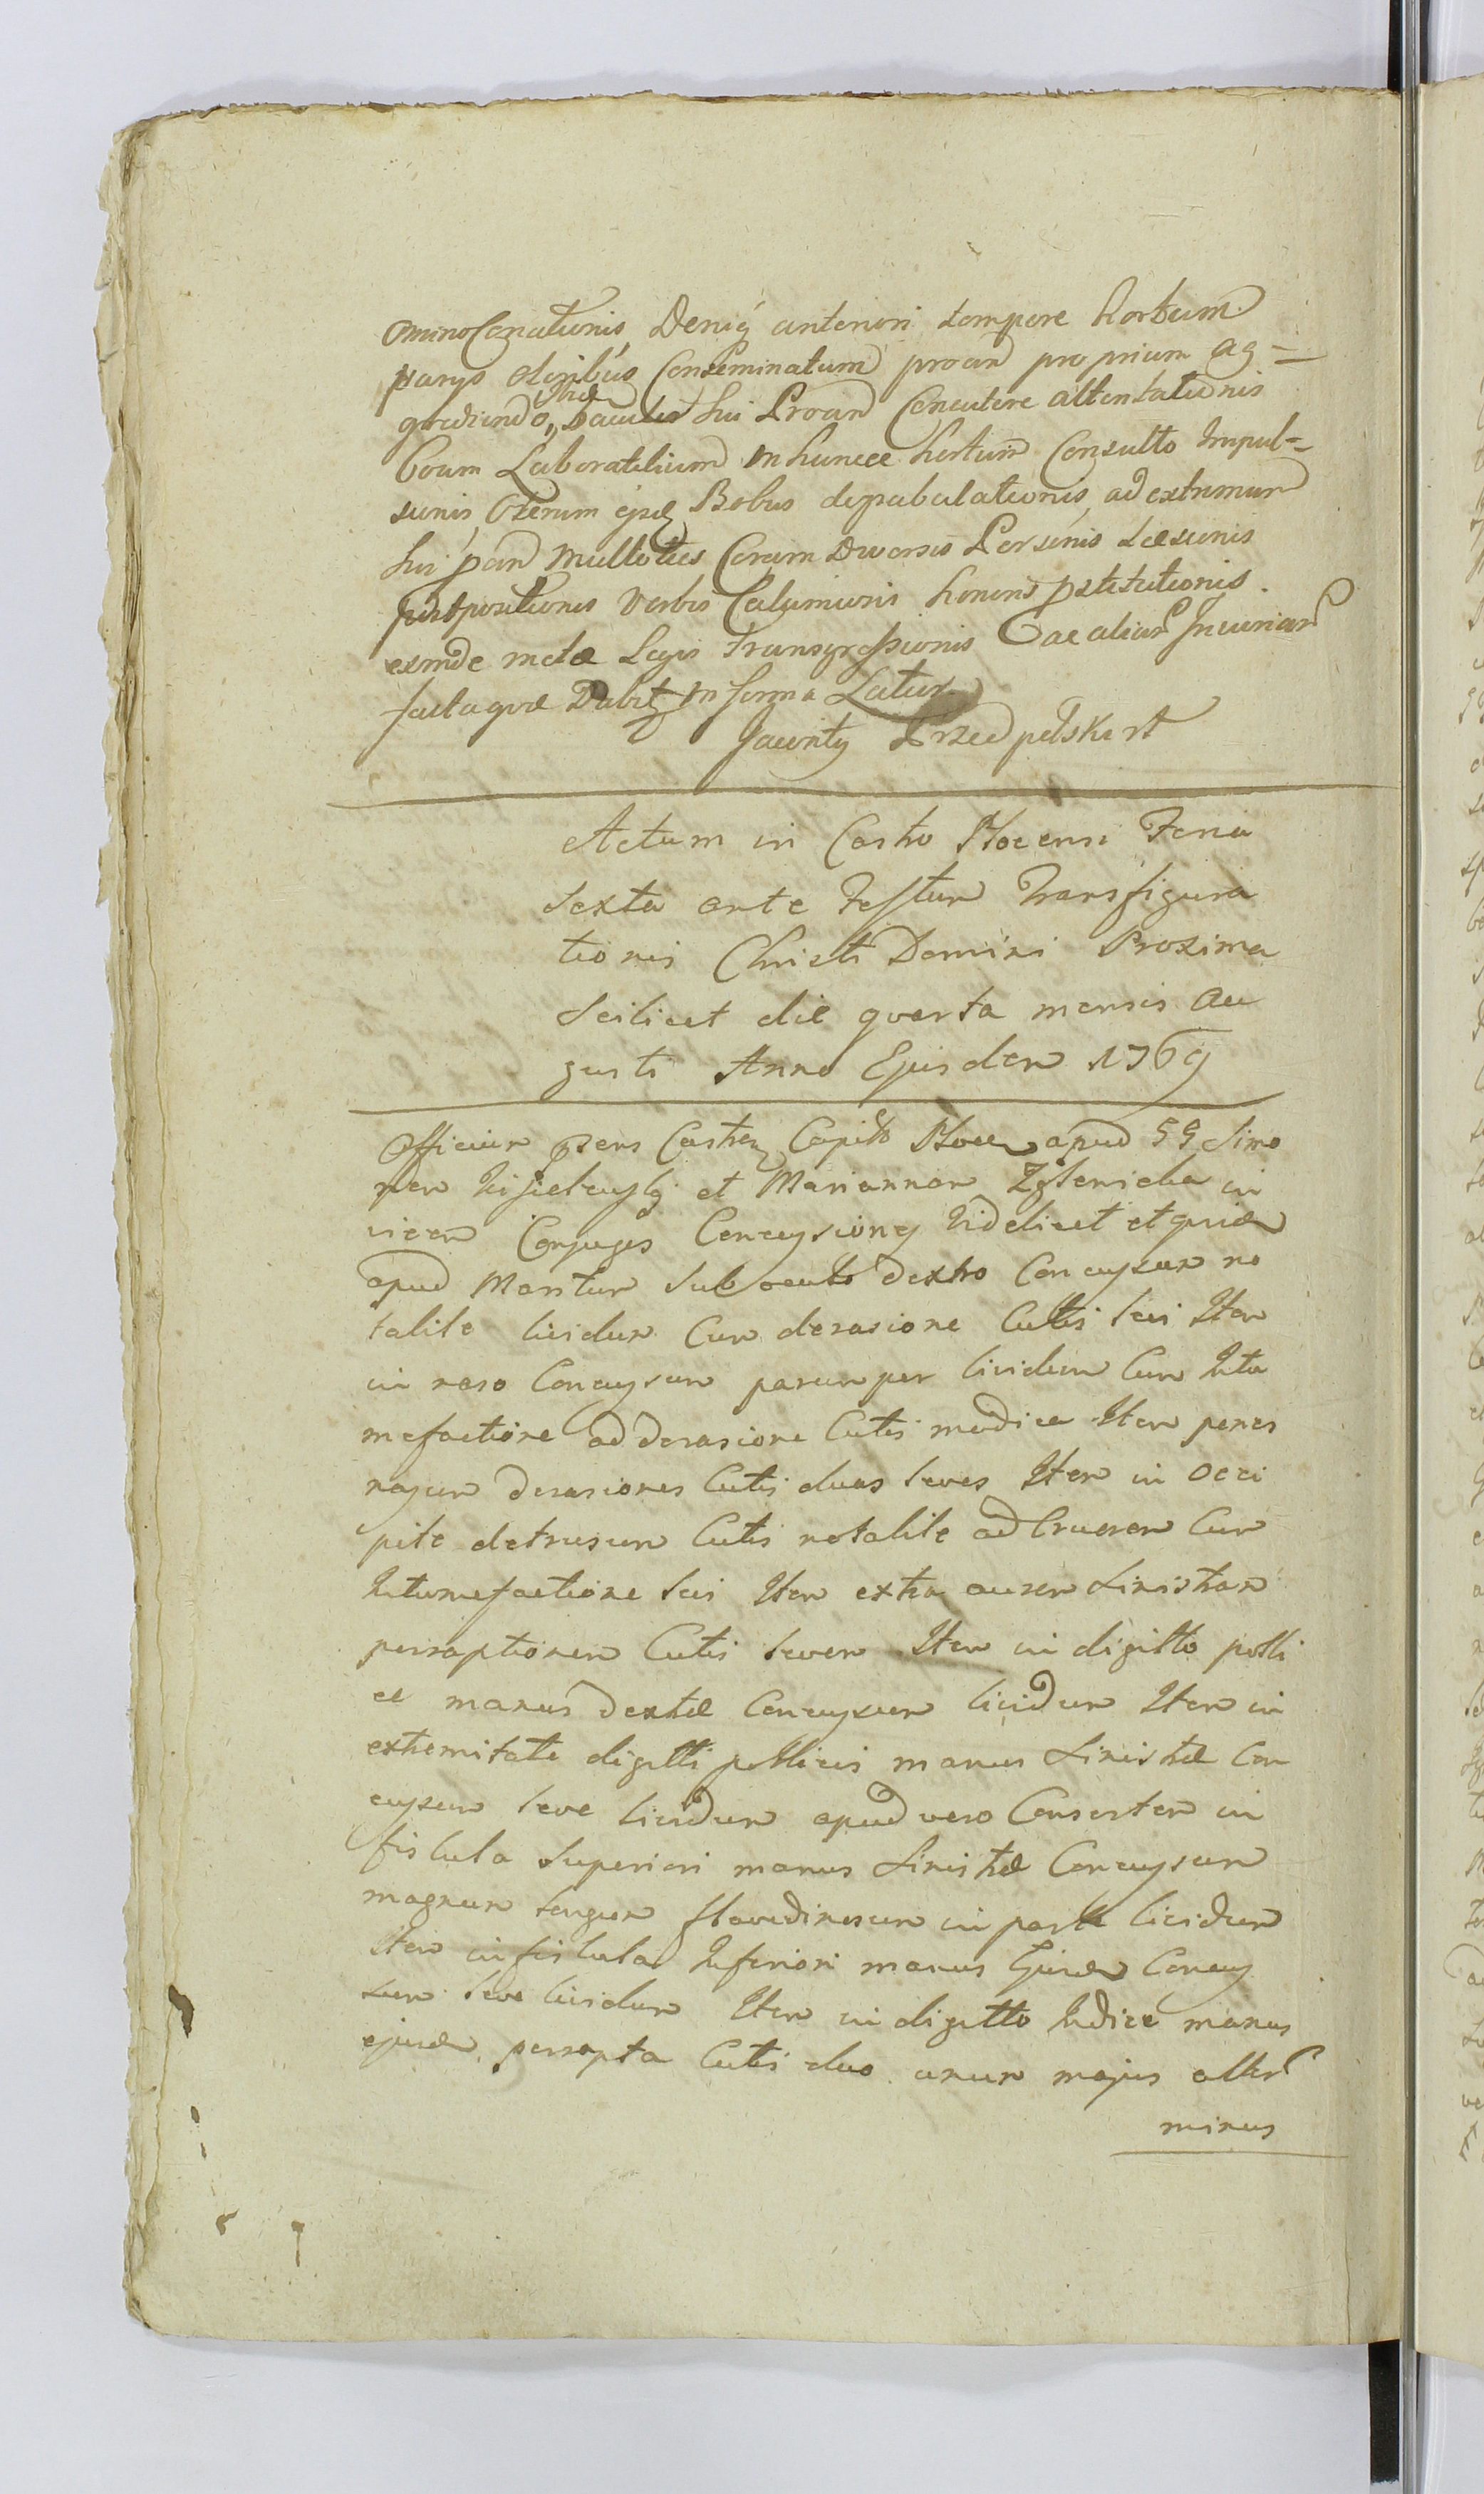 ominoCenationis, Deniq anteriori tempore hortum
varys oleribus Conseminatum proan proprium ag=
grediendo, baculo sui Proan Concutere attentationis
boum Laboratilium in hunce hortum Consulto Impul=
sionis, Olerum ejsd Bobus depabulationis, ad extremum
sui pan multoties Coram Diversis Personis Læsionis
postpositionis verbis Calumniosis honoris pstitutionis.
exinde metæ Legis transgressionis ac aliar Iniuriar
factaque Dabit in forma Latur
Jacenty Przedpełski rt
Actum in Castro Plocensi Feria
Sexta ante Festum Transfigura
tionis Christi Domini Proxima
Scilicet die quarta mensis Au
gusti Anno Ejusdem 1769
Officium pzens Castren Capitle Plocen apud GG Simo
nem et Mariannam in
vicem Conjuges Concussiones Videlicet et quidem
apud Maritum Sub oculo dextro Concussum no
tabile lividum Cum derasione Cutis levi Item
in naso Concussum parumper lividum Cum Intu
mefactione ad derasione Cutis modica Item penes
nasum derasiones Cutis duas leves Item in occi
pite detrusum Cutis notabile ad Cruorem Cum
Intumefactione levi Item extra aurem Sinistram
perraptionem Cutis levem Item in digitto polli
ce manus dextræ Concussum lividum Item in
extremitate digitti pollicis manus Sinistræ Con
cussum leve lividum apud vero Consortem in
fistula Superiori manus Sinistræ Concussum
magnum longum flavedinosum in parte lividum
Item in fistula Inferiori manus Ejusdem Concus
sum leve lividum Item in digitto Indice manus
ejusdem perrapta Cutis duo unum majus alter
minus